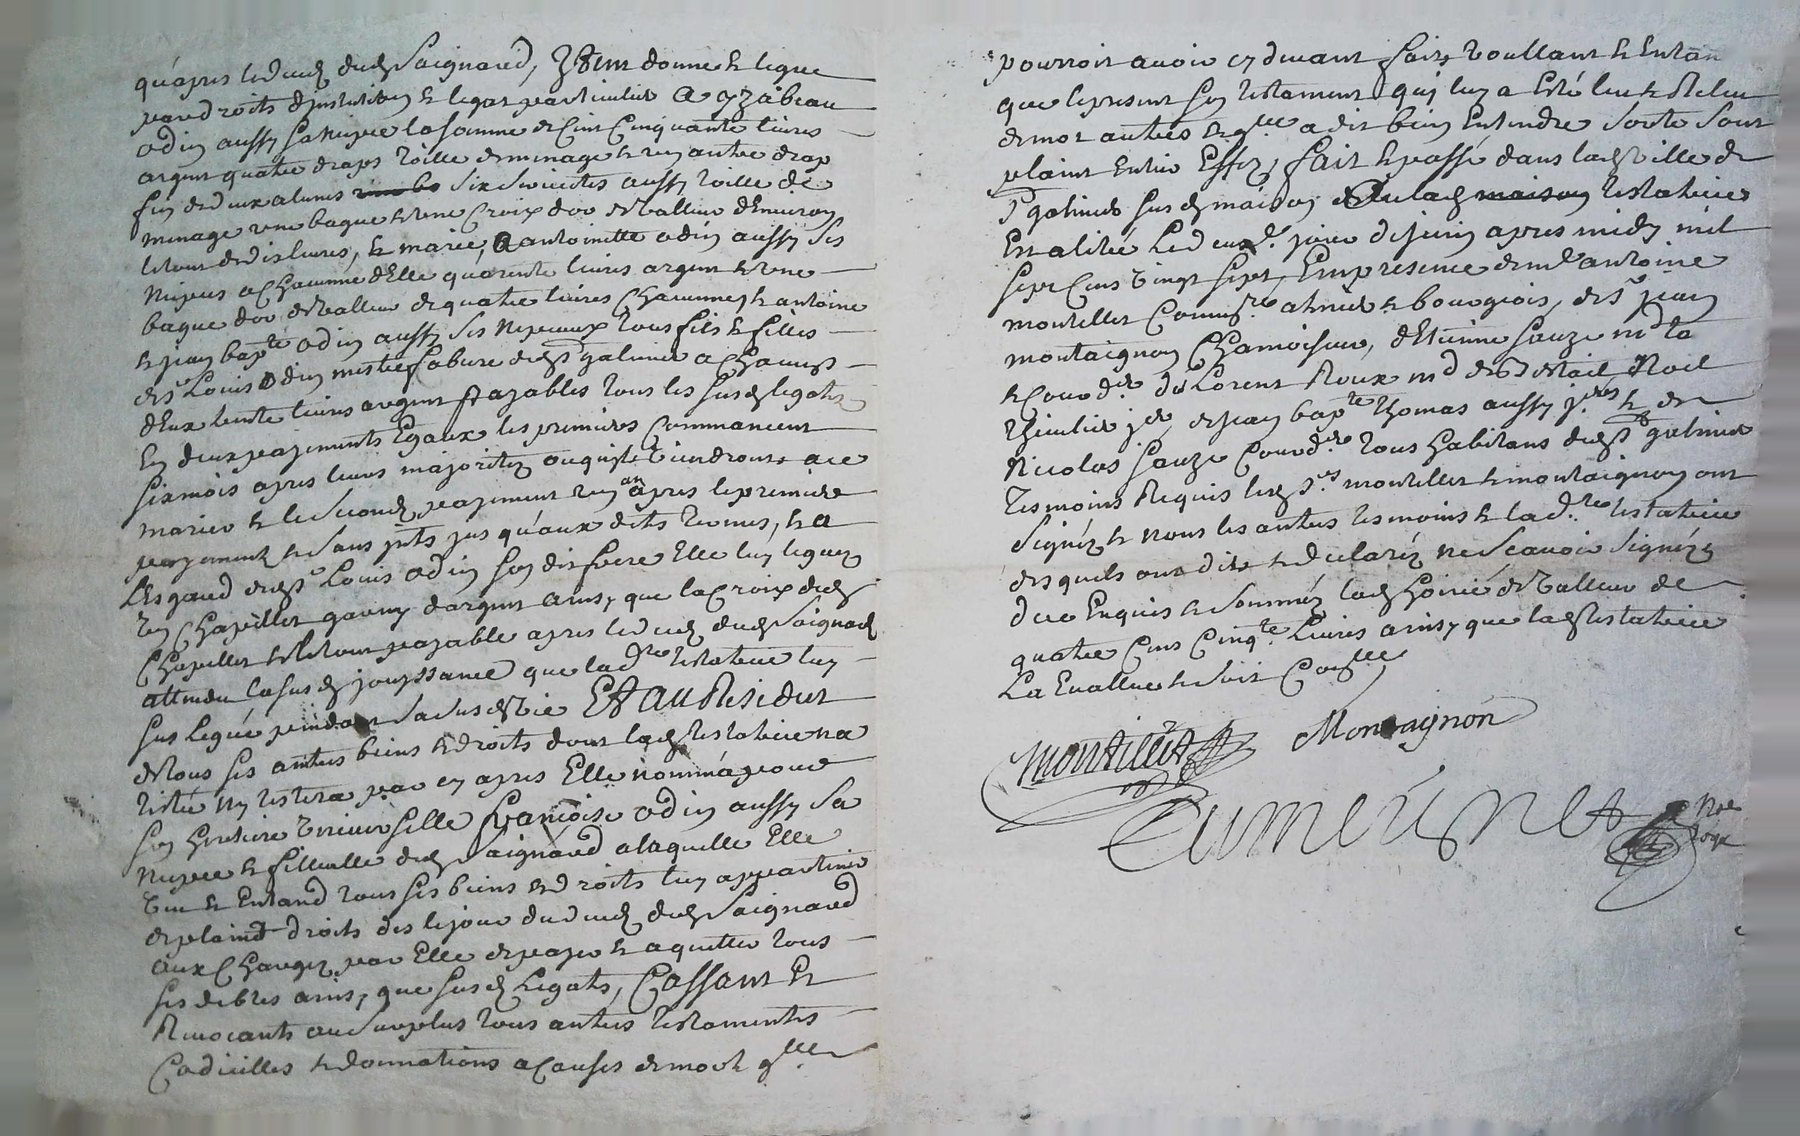 qu'apres le deceds dud Saignard, Item donne & legue
par droits d'institution & legat particulier a yzabeau
odin aussy sa niepce la somme de Cent Cinquante livres
argent quatre draps toille de menage & un autre drap
fin de deux aunes six serviettes aussy toille de
menage une bague & une Croix d'or de valleur d'environ
le tout de dix livres, & marie, & antoinette odin aussy ses
niepces a chacunne d'Elle quarente livres argent & une
bague d'or de valleur de quatre livres Chacunne, & antoine
& jean bapte odin aussy ses nepveux tous fils & filles
de Sr Louis odin mestre fabure dud St galmier a chacun
d'Eux trente livres argent payables tous les susd legats
En deux payements Egaux les premiers Commancent
six mois apres leurs majorités ou quils viendront a ce
marier & le second payement un an apres le premier
payement & sans jnts jusqu'aux dits termes, & a
L'Esgard dud Sr Louis odin son dit frere Elle luy legue
un Chapellet garny d'argent ainsy que la Croix dud
Chapellet & le tout payable apres le deceds dud Saignard
attendu la susd jouyssance que lad testatrice luy
sus leguée pendant sa susd vie Et au Residut
de tous ses autres biens & droits dont lad testatrice n'a
testée ny testera par cy apres Elle nommé pour
son heritiere universelle françoise odin aussy sa
niepce & filleulle dud Saignard a laquelle Elle
veut & Entand tous ses biens & droits luy appartenir
de plaint droits des le jour du deceds dud Saignard
aux Charges par Elle de payer & aquitter tous
ses debtes ainsy que susd Legats, Cassant &
Revocants au surplus tous autres testaments
Codicilles & donnations a Causes de mort qlle
pourroit avoir cy devant faits voullant & Entan
que le present son testament qui luy a Eté leu & Releu
de mot autres & qlle a dit bien Entendre sorte son
plaint Entier Effez, fait & passé dans lad ville de
St galmier sus d maison de lad maison testatrice
En alitée Le deuxe jour de juin apres midy mil
sept Cens vingt sept, En presence de me antoine
montellet Commre aterrier & bourgeois, de Sr jean
montaignon Chamoiseur, d'Etienne Sauze md ta
& Courd er de Lorent Roux md de detail Noel
thiollier jer, de jean bapte thomas aussy jer & de
Nicolas Sauze Courder tous habitans dud St galmier
tesmoins Requis lesd Srs montellet & montaignon ont
signéz & nous les autres tesmoins & lad te testatrice
desquels ont dits & declaréz ne scavoir signéz
de ce Enquis & sommés lad hoirié de valleur de
quatre Cens Cinqte Livres ainsy que lad testatrice
La Evalluée & soit Conlle
Montellet Montagnon
Nore
Roye